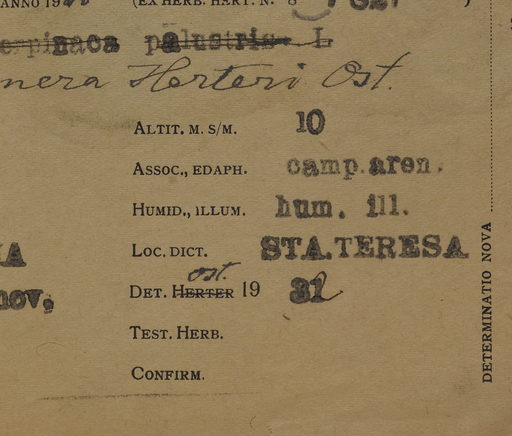 ANNO 19
(EX HERB. HART. N.
palustris L
Herteri Ost.
ALTIT. M. S/M. 10
ASSOC., EDAPH. camp.aren.
HUMID., ILLUM. hum. ill.
LOC. DICT. STA.TERESA
ost.
DET. HERTER 19 31
nov,
TEST. HERB.
CONFIRM.
DETERMINATIO NOVA